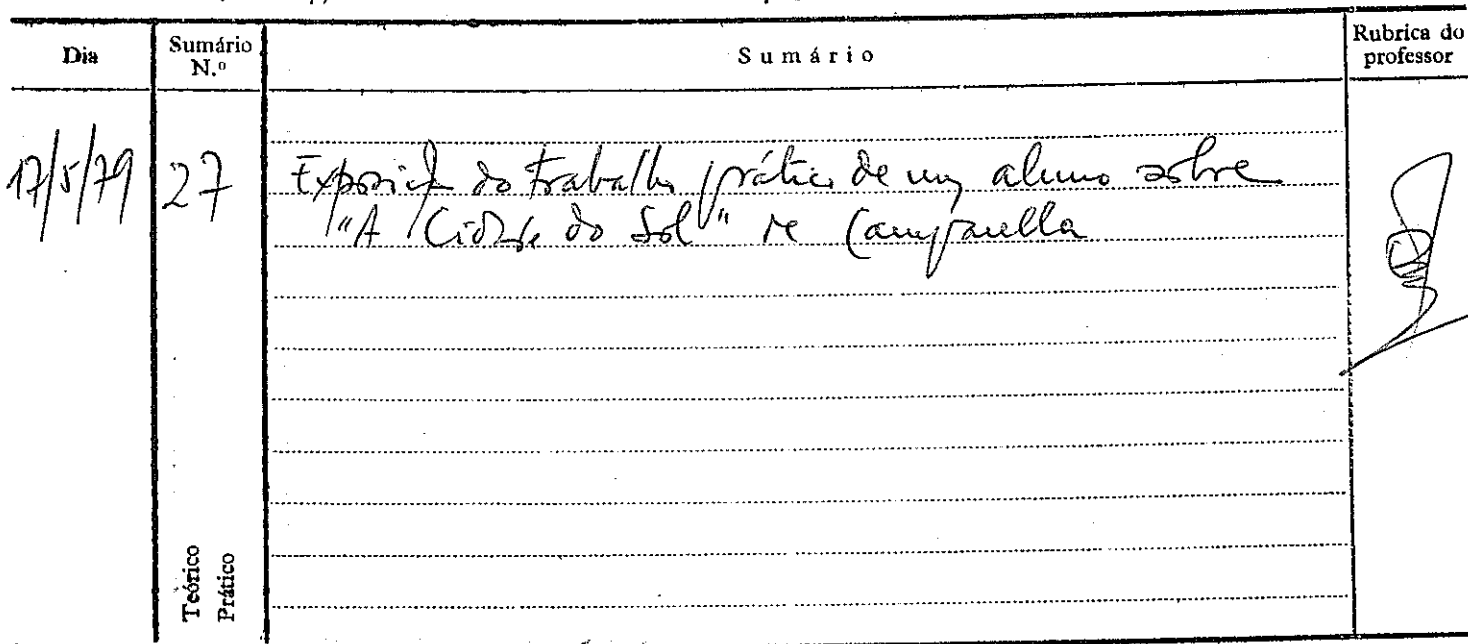 Dia
Sumário N.º
Sumário
Rubrica do professor
17/5/79
27
Exposição do trabalho prático de um aluno sobre
"A Cidade do Sol" de Campanella
Teórico
Prático